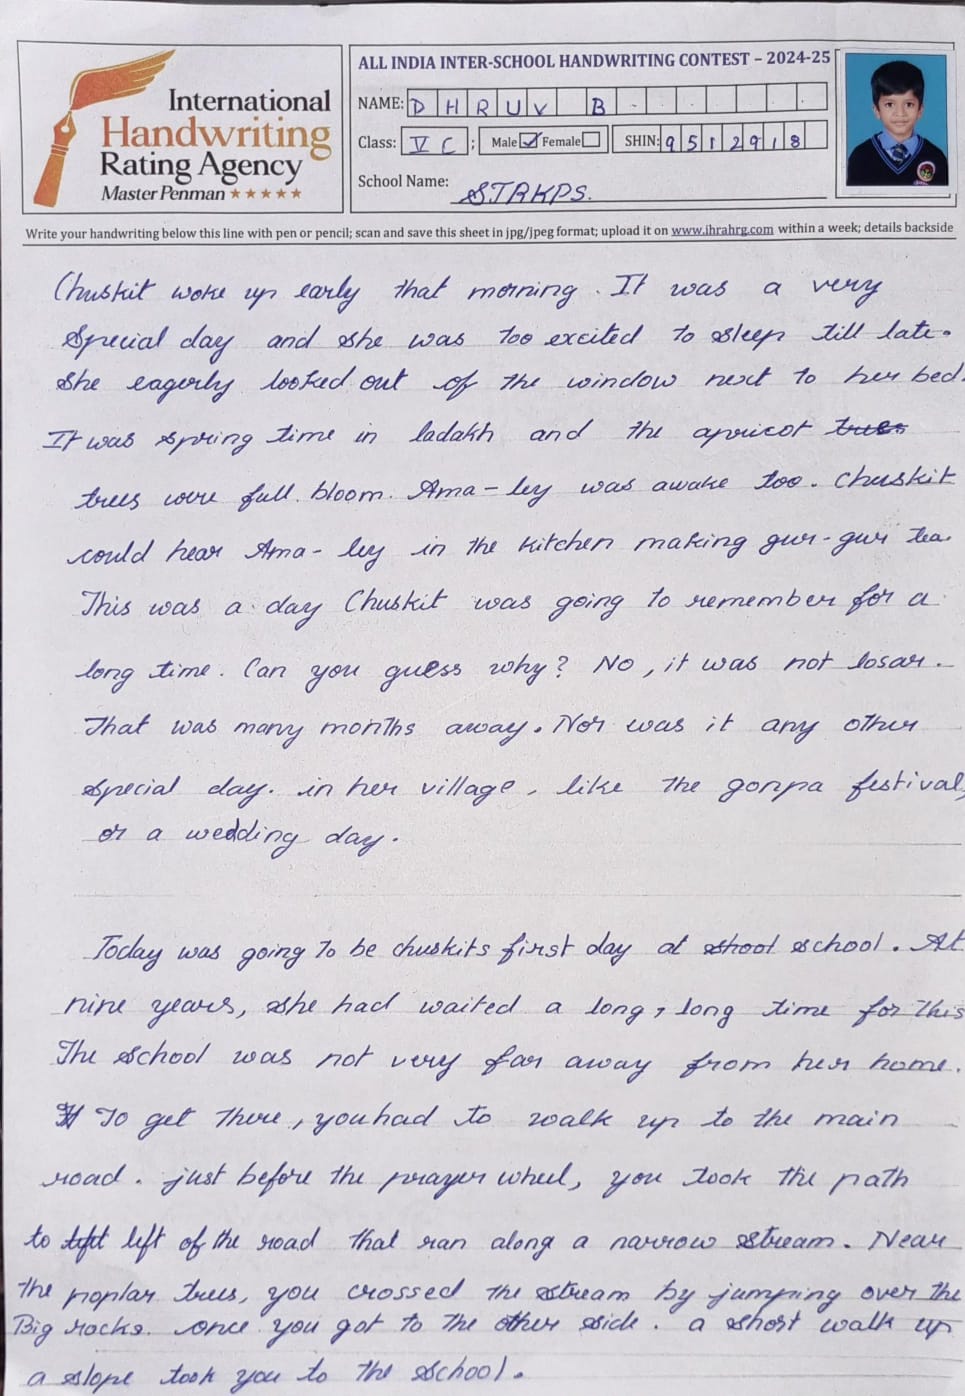 International
Handwriting
Rating Agency
Master Penman ★★★★★
ALL INDIA INTER-SCHOOL HANDWRITING CONTEST – 2024-25
NAME: DHRUV B
Class: V C ; Male ☑ Female ☐ SHIN: 9512918
School Name: S.T.R.K.P.S.
Write your handwriting below this line with pen or pencil; scan and save this sheet in jpg/jpeg format; upload it on www.ihrahrg.com within a week; details backside
Chuskit woke up early that morning. It was a very
special day and she was too excited to sleep till late.
She eagerly looked out of the window next to her bed.
It was spring time in ladakh and the apricot trees
trees were full bloom. Ama-ley was awake too. Chuskit
could hear Ama-ley in the kitchen making gur-gur tea.
This was a day Chuskit was going to remember for a
long time. Can you guess why? No, it was not losar.
That was many months away. Nor was it any other
special day. in her village, like the gonpa festival,
or a wedding day.
Today was going to be chuskits first day at shool school. At
nine years, she had waited a long, long time for this
The School was not very far away from her home.
To get there, you had to walk up to the main
road. just before the prayer wheel, you took the path
to left of the road that ran along a narrow stream. Near
the poplar trees, you crossed the stream by jumping over the
Big rocks. once you got to the other side. a short walk up
a slope took you to the school.